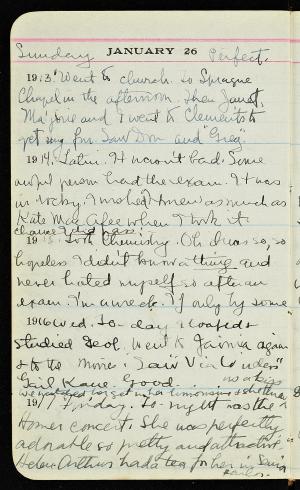 Sunday JANUARY 26 Perfect.
1913 Went to church. To Sprague
Chapel in the afternoon. Then Janet,
Marjorie and I went to Clements to
get my fur. Saw Don and "Greg"
1914. Latin. It wasn't bad. Some
awful person had the exam. It was
in rocky. I wished Homer as much as
Kate Mac Afee when I took it
chance I'd pass.
1915. Took Chemistry. Oh I was so, so
hopeless I didn't know a thing and
never hated myself so after an
exam. I'm a wreck. If only by some
1916 Wed. To-day I loafed &
studied Geol. Went to again
& to the movies. Saw "
Gail Kane. Good. in a big
we watched her get in her limousine &
1917 Friday. To-night was the
Homer concert. She was perfectly
adorable so pretty and attractive.
Helen Arthur had a tea for her in
parlor.